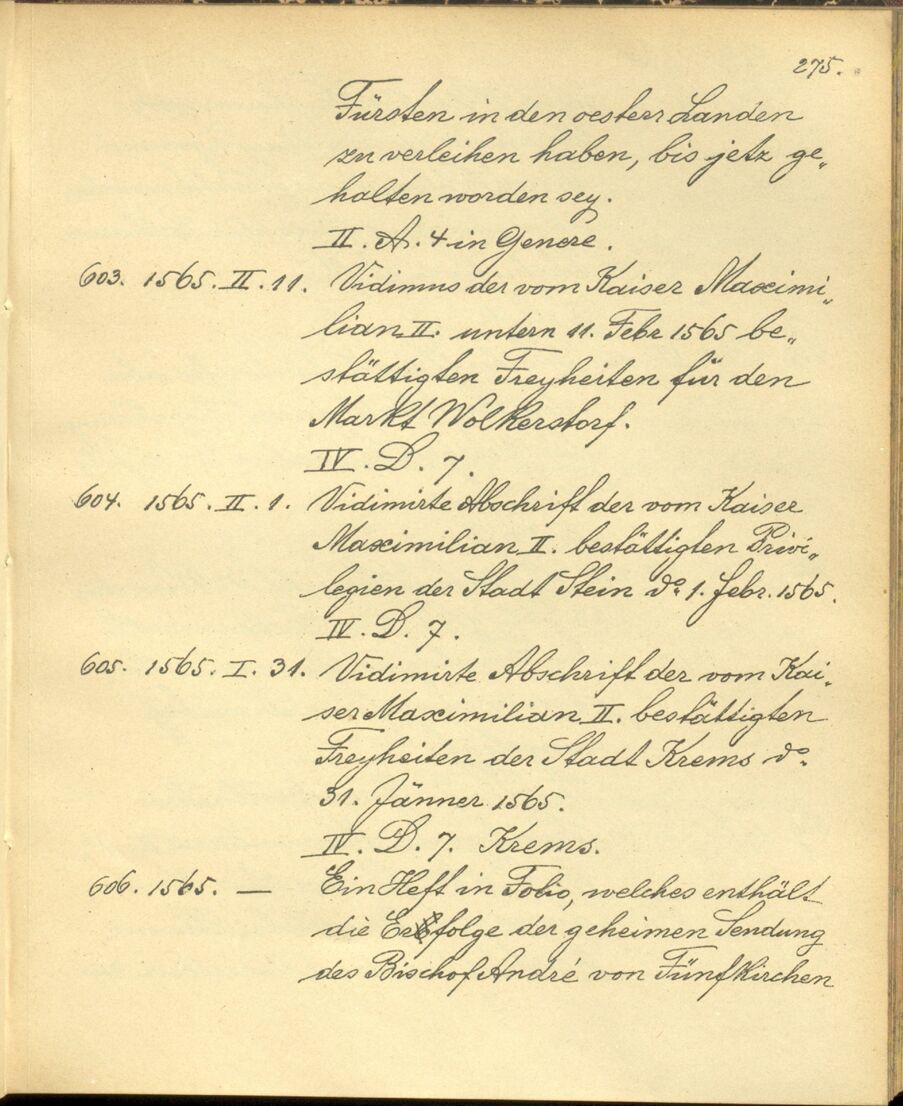 275.
Fürsten in den oesterr Landen
zu verleihen haben, bis jetz ge„
halten worden sey.
II. A. 4 in Genere.
603. 1565. II. 11. Vidimus der vom Kaiser Maximi„
lian II. untern 11. Febr 1565 be„
stättigten Freyheiten für den
Markt Wolkerstorf.
IV. D. 7.
604. 1565. II. 1. Vidimirte Abschrift der vom Kaiser
Maximilian II. bestättigten Privi„
legien der Stadt Stein do. 1. Febr. 1565.
IV. D. 7.
605. 1565. I. 31. Vidimirte Abschrift der vom Kai„
ser Maximilian II. bestättigten
Freyheiten der Stadt Krems do.
31. Jänner 1565.
IV. D. 7. Krems.
606. 1565. — Ein Heft in Folio, welches enthält
die Erfolge der geheimen Sendung
des Bischof André von Fünfkirchen